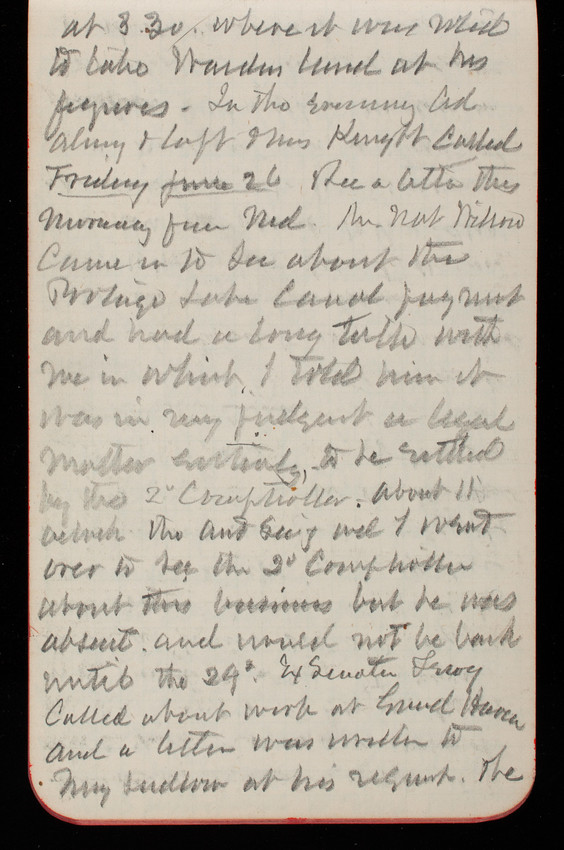 at 3 30, where it was
to take Warden hand at his
figures. In the evening Col
& Mrs Knight Called
Friday June 26 Rec a letter this
morning from Ned. Mr. Nat Wilson
Came in to See about the
Portage Lake Canal
and had a long talk with
me in which I told him it
was in my judgmt a legal
matter entirely, to be settled
by the 2d Comptroller. about 11
oclock the and I went
over to See the 2d Comptroller
about this business but he was
absent. and would not be back
until the 29th. Ex Senator Ferry
Called about work at Grand Haven
and a letter was written to
Maj Ludlow at his request. The